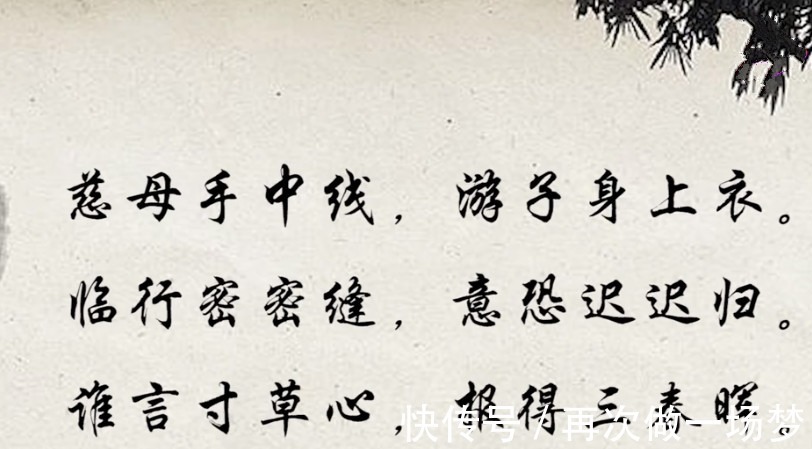 慈母手中线，游子身上衣。
临行密密缝，意恐迟迟归。
谁言寸草心，报得三春晖。
快传号 / 再次做一场梦